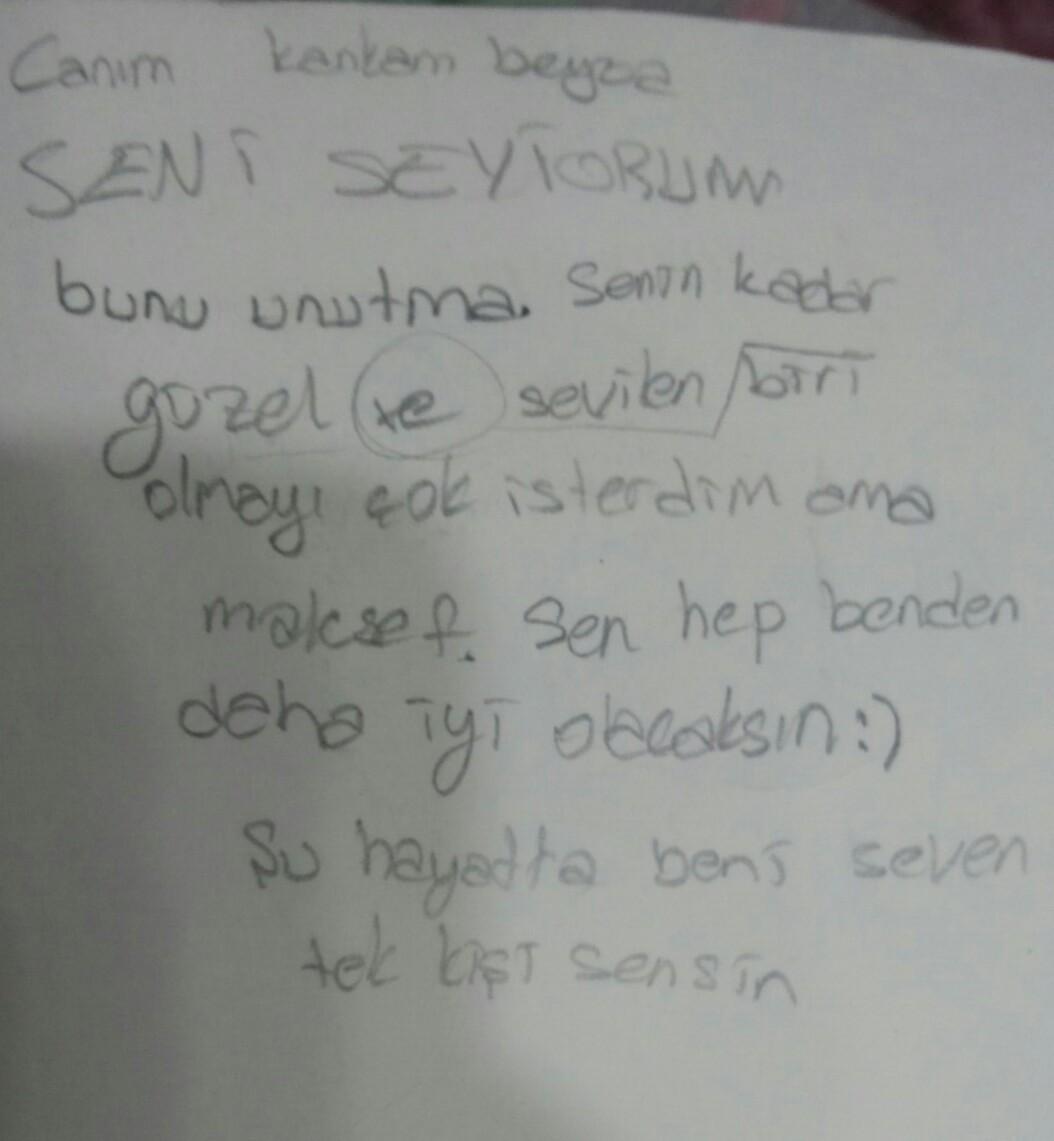 Canım kankam beyza
SENİ SEVİYORUM
bunu unutma. Senin kadar
güzel ve sevilen biri
olmayı çok isterdim ama
maksef. Sen hep benden
daha iyi olacaksın :)
Şu hayatta beni seven
tek kişi sensin